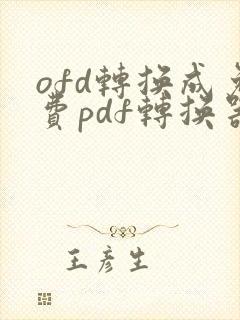 ofd轉換成免
費pdf轉換器
王彥生